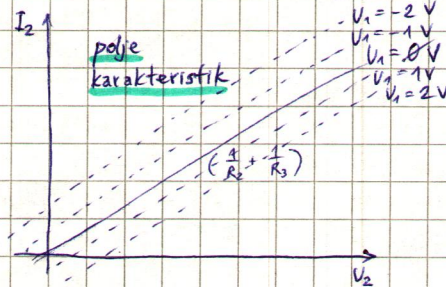 I₂
polje
karakteristik
U₁ = -2 V
U₁ = -1 V
U₁ = 0 V
U₁ = 1 V
U₁ = 2 V
(-1/R₂ + 1/R₃)
U₂